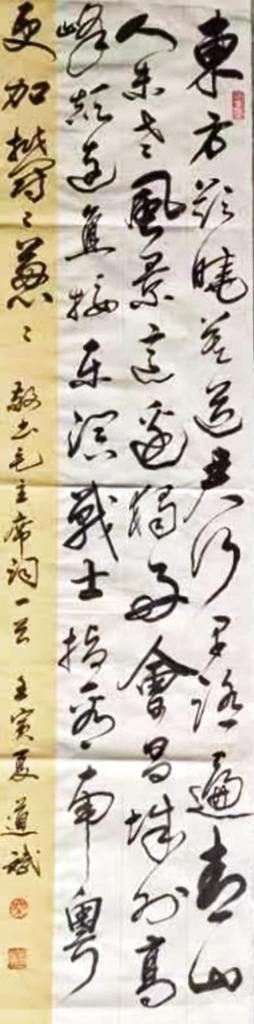 東方欲曉莫道君行早踏遍青山
人未老風景這邊獨好會昌城外高
峰顛連直接东溟戰士指看南粵
更加鬱々葱々 敬书毛主席詞一首 壬寅夏 道斌